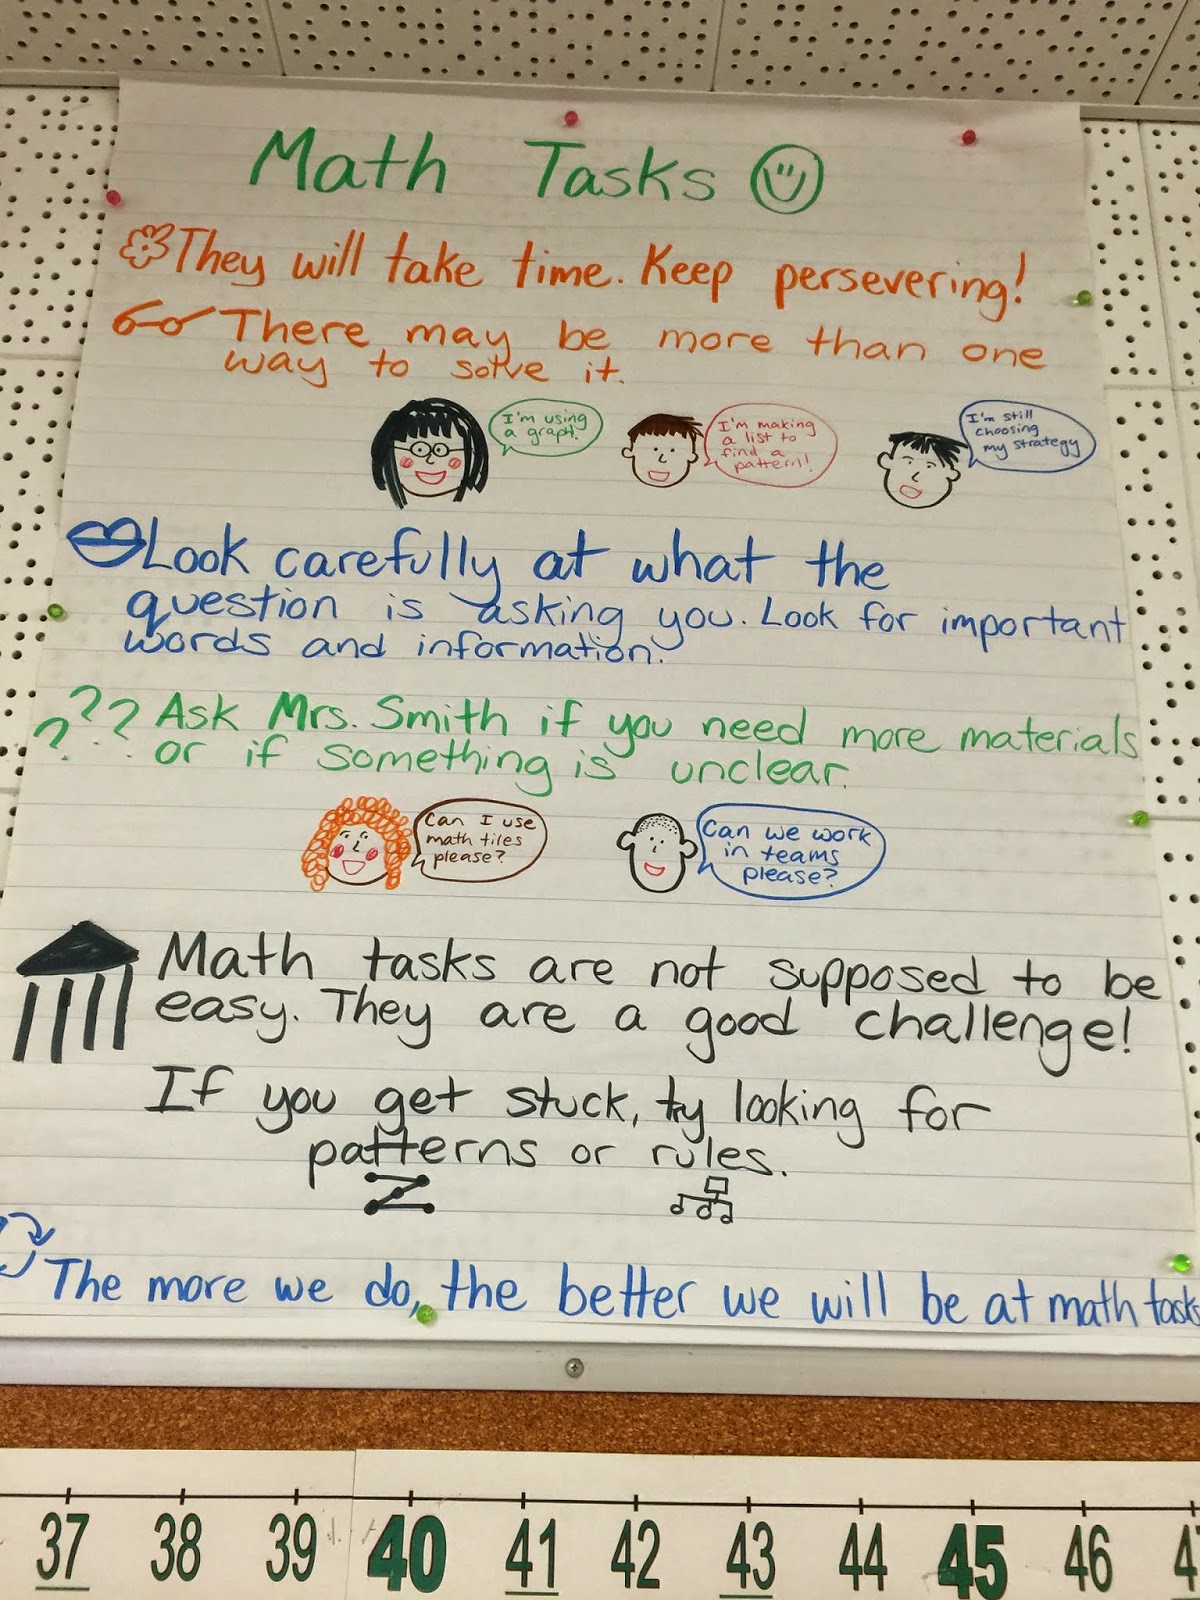 Math Tasks
They will take time. Keep persevering!
There may be more than one
way to solve it.
I'm using
a graph.
I'm making
a list to
find a
pattern!
I'm still
choosing
my strategy
Look carefully at what the
question is asking you. Look for important
words and information.
??? Ask Mrs. Smith if you need more materials
? or if something is unclear.
Can I use
math tiles
please?
Can we work
in teams
please?
Math tasks are not supposed to be
easy. They are a good challenge!
If you get stuck, try looking for
patterns or rules.
The more we do, the better we will be at math tasks
37 38 39 40 41 42 43 44 45 46